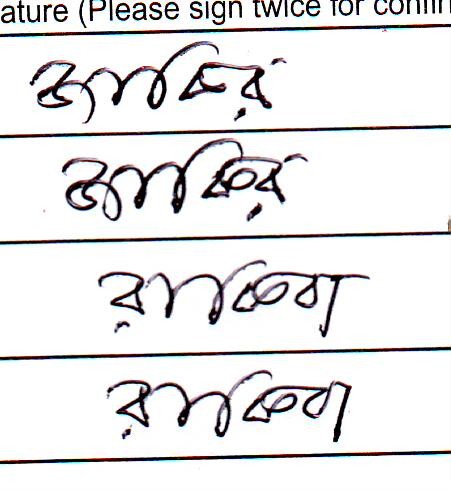 ature (Please sign twice for confir
জাকির
জাকির
রাকিবা
রাকিবা